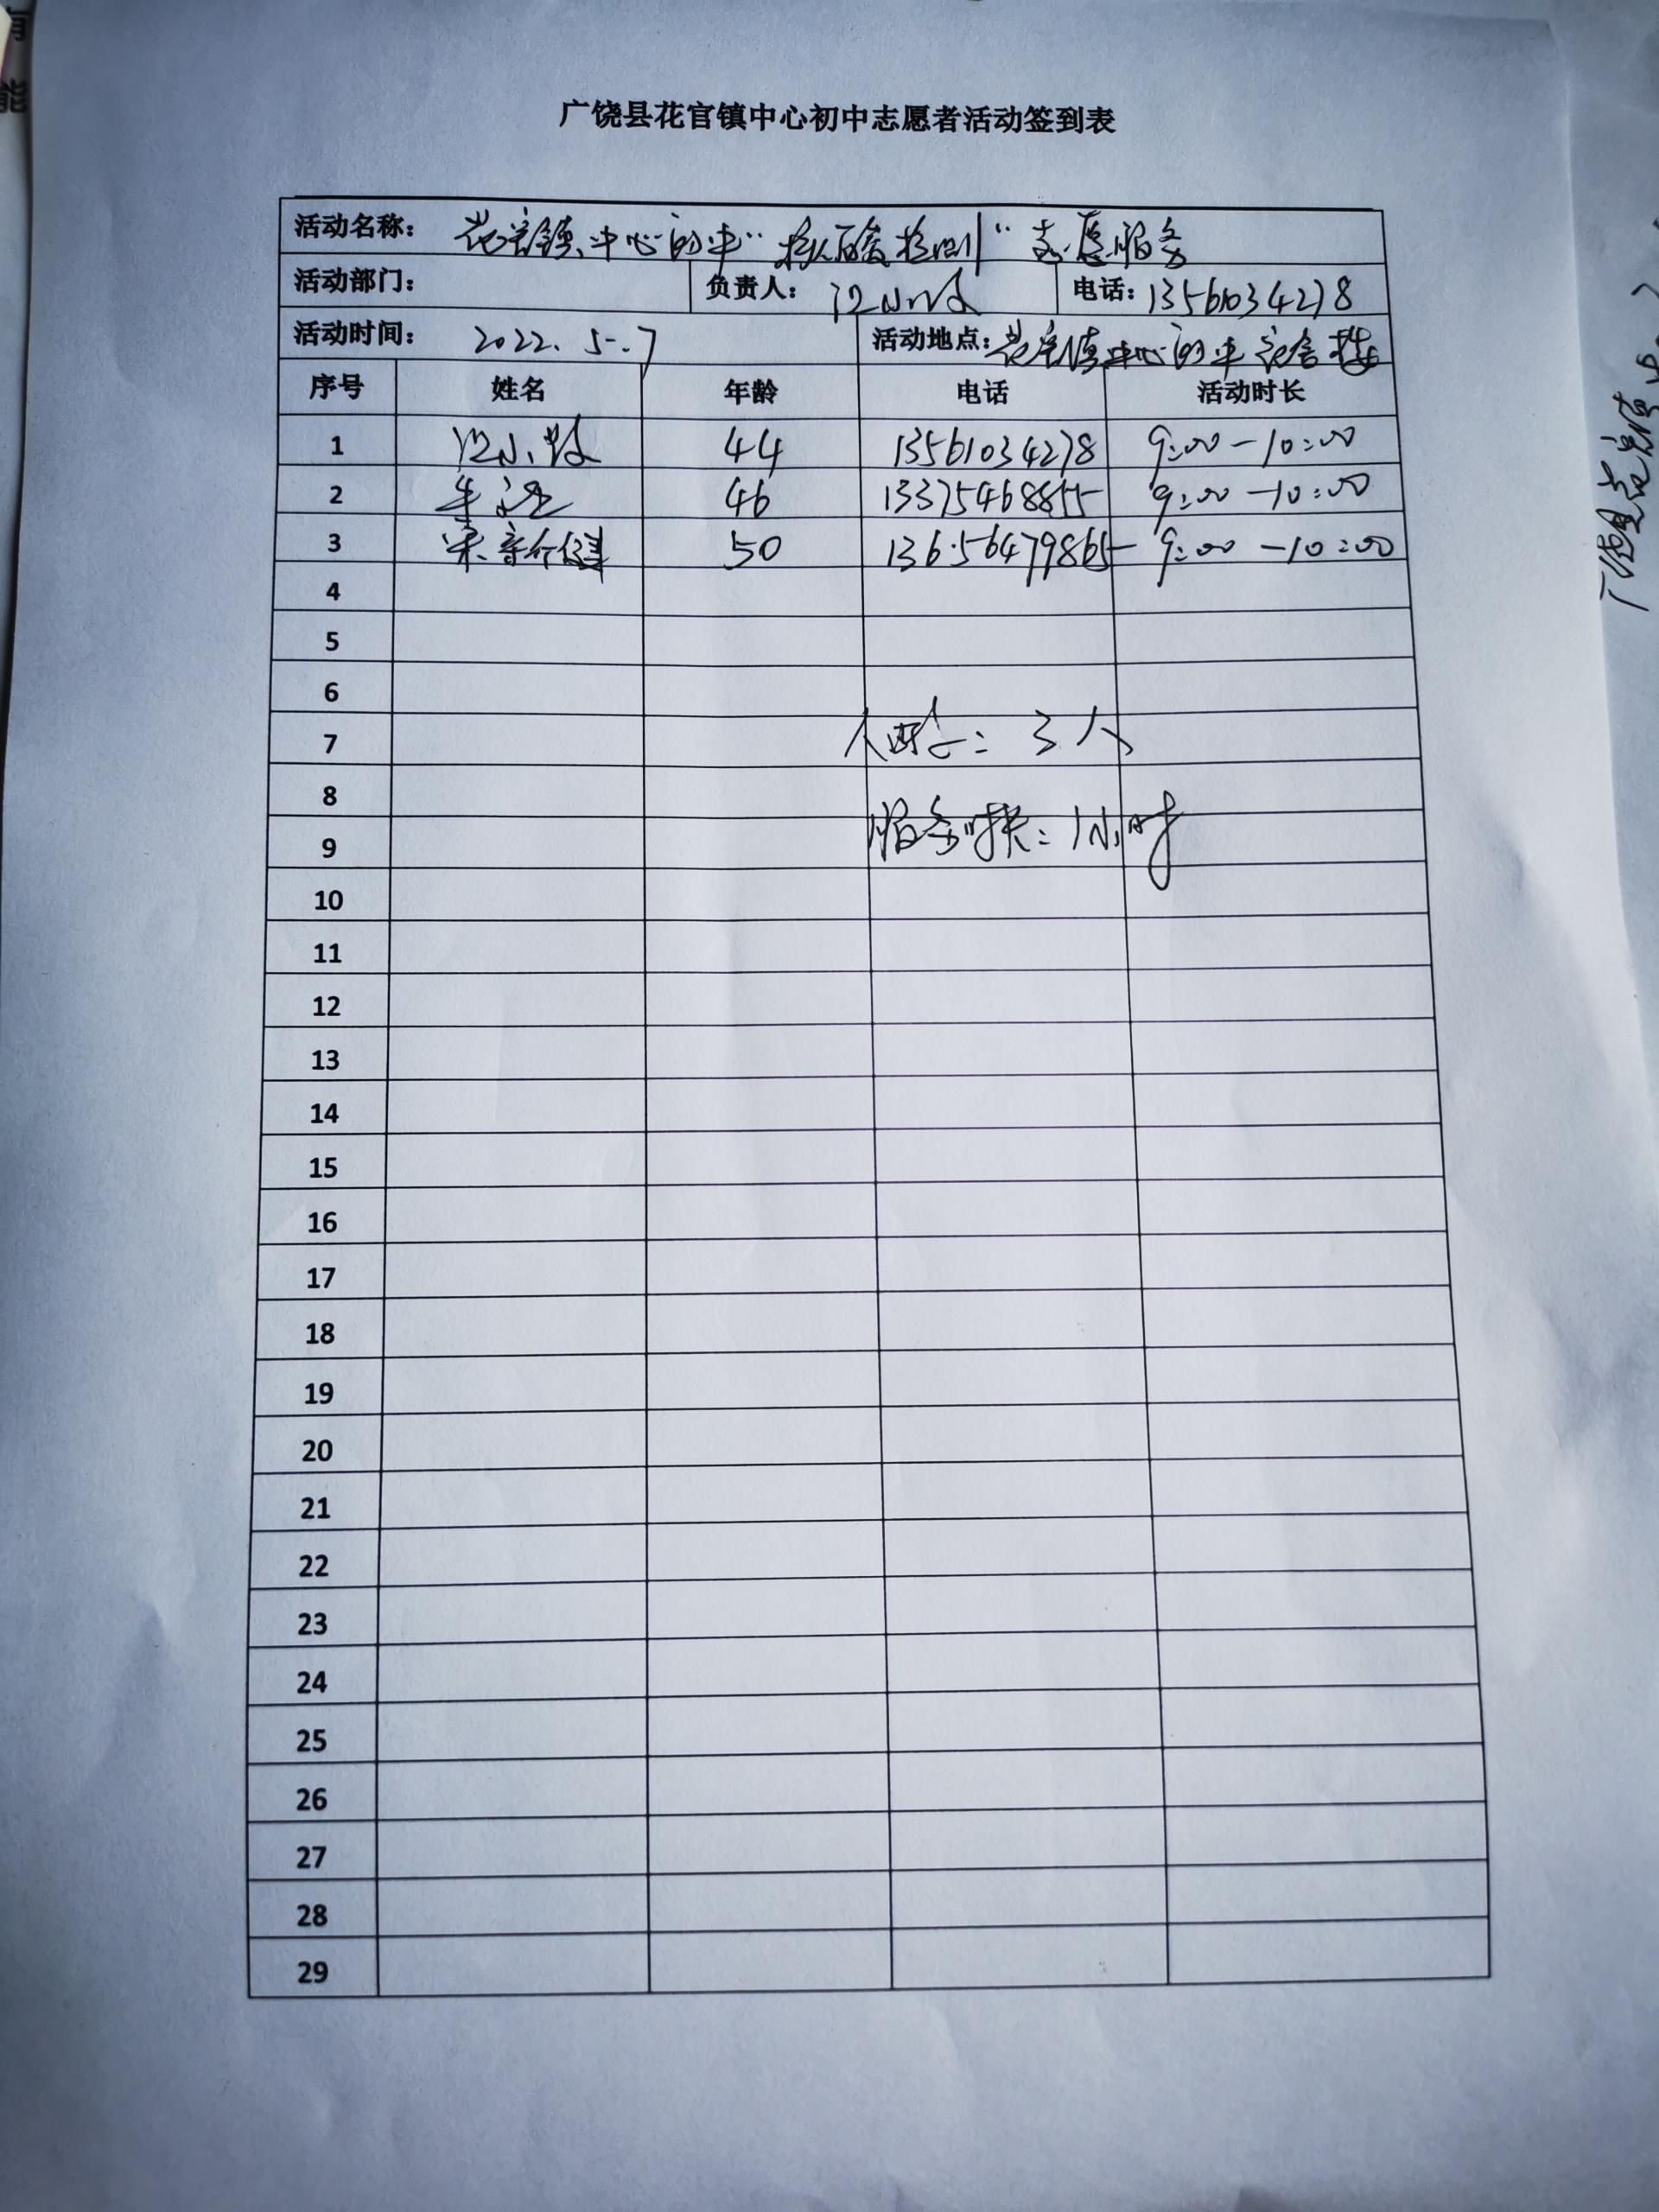 广饶县花官镇中心初中志愿者活动签到表
活动名称： 花官镇中心初中"核酸检测"志愿服务
活动部门： 负责人： 电话：13561034278
活动时间： 2022.5.7 活动地点：花官镇中心初中宿舍楼
序号 姓名 年龄 电话 活动时长
1 44 13561034278 9:00-10:00
2 46 13375468855 9:00-10:00
3 50 13656479865 9:00-10:00
4
5
6
7 人数：3人
8
9 服务时长：1小时
10
11
12
13
14
15
16
17
18
19
20
21
22
23
24
25
26
27
28
29
有
能